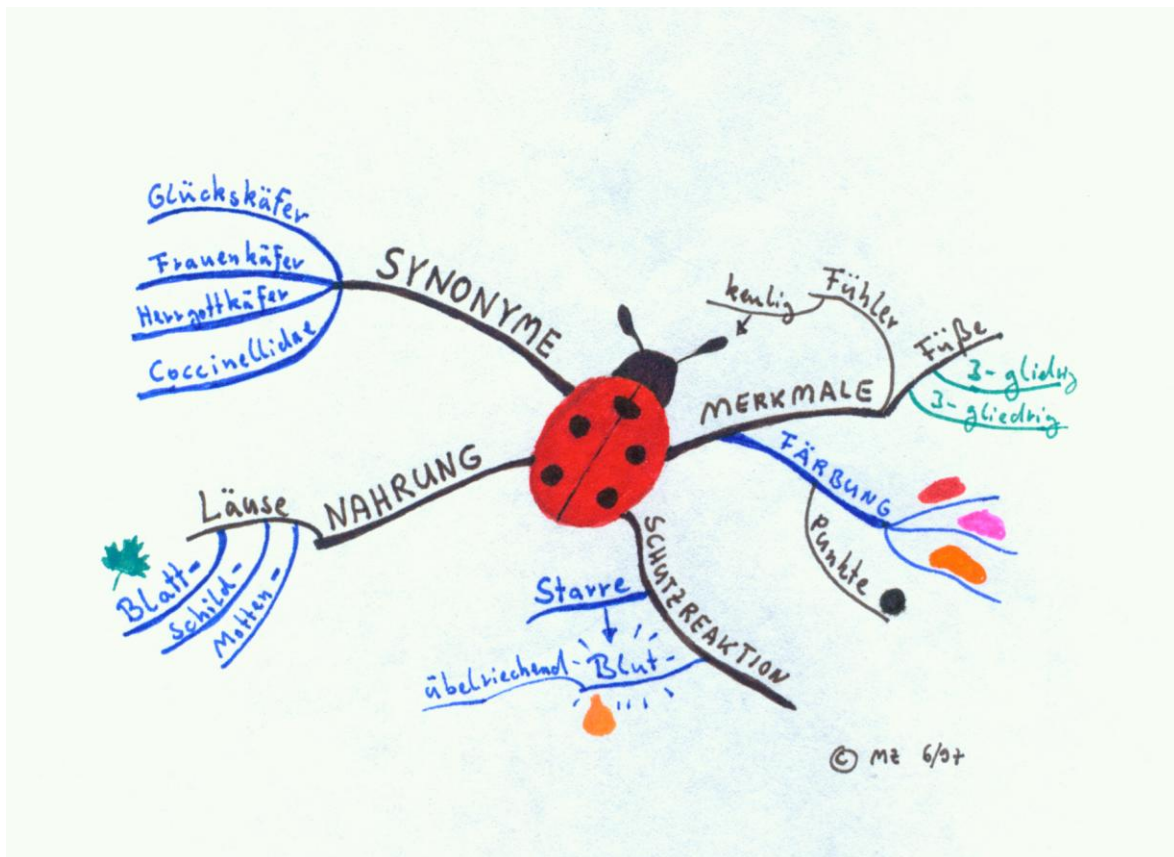 Glückskäfer
Frauenkäfer
Herrgottkäfer
Coccinellidae
SYNONYME
keulig
Fühler
Füße
3-glidrig
3-gliedrig
MERKMALE
FÄRBUNG
Punkte
NAHRUNG
Läuse
Blatt-
Schild-
Motten-
SCHUTZREAKTION
Starre
übelriechend
-Blut-
© MZ 6/97